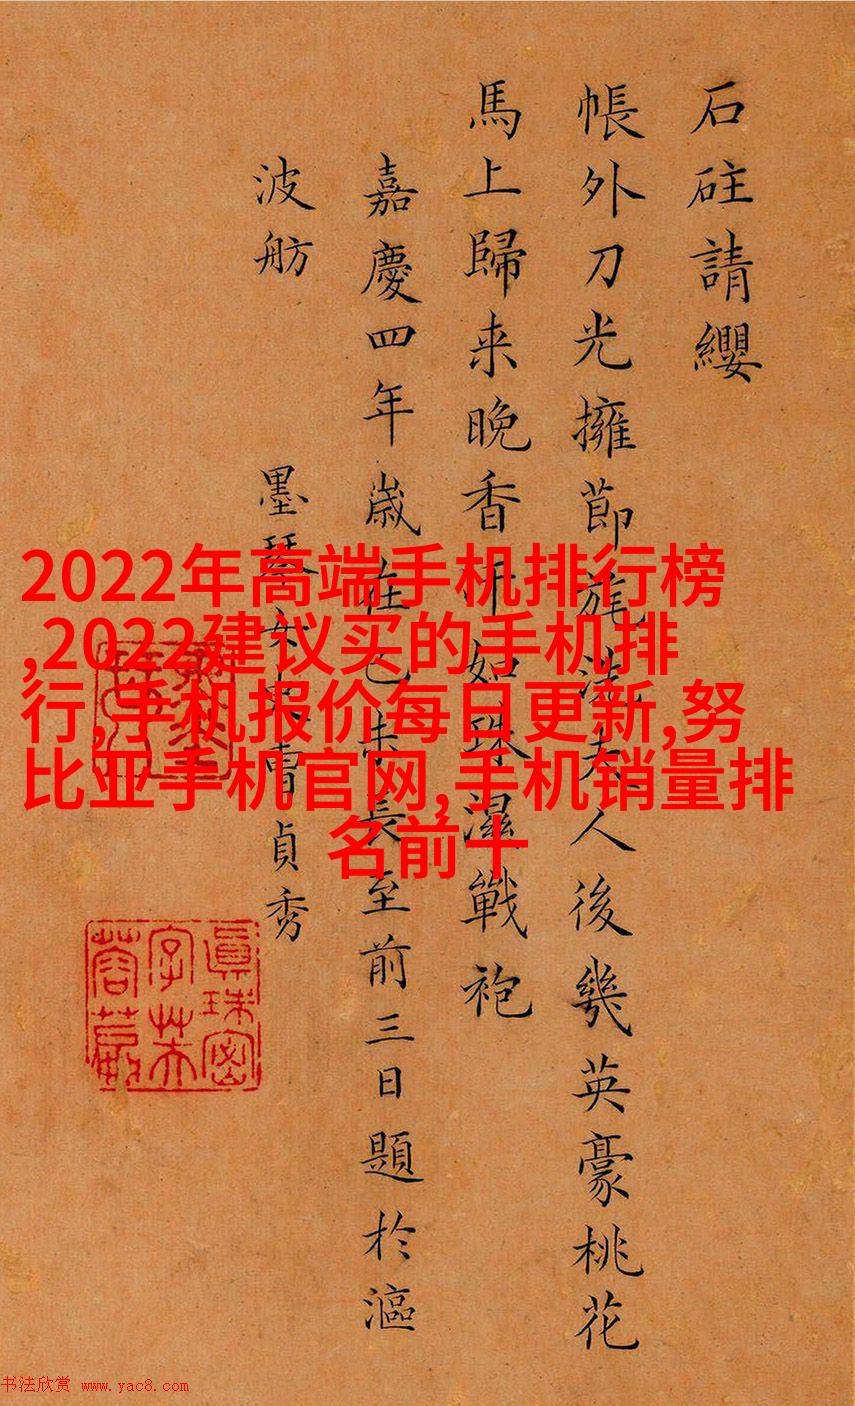 石砫請纓
帳外刀光擁節旄洗夫人後幾英豪桃花
馬上歸来晚香汗如珠濕戰袍
嘉慶四年歲在己未長至前三日題於漚
波舫
墨琴女史曹貞秀
2022年高端手机排行榜
,2022建议买的手机排
行,手机报价每日更新,努
比亚手机官网,手机销量排
名前十
眞珠密
字芙
蓉
书法欣赏 www.yac8.com